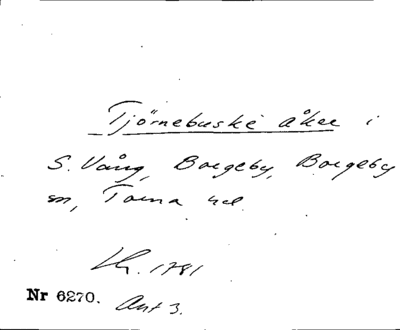 Tjörnebuske åker i
S. Vång, Borgeby, Borgeby
sn, Torna hd.
Kr. 1781
Nr 6270. Akt 3.